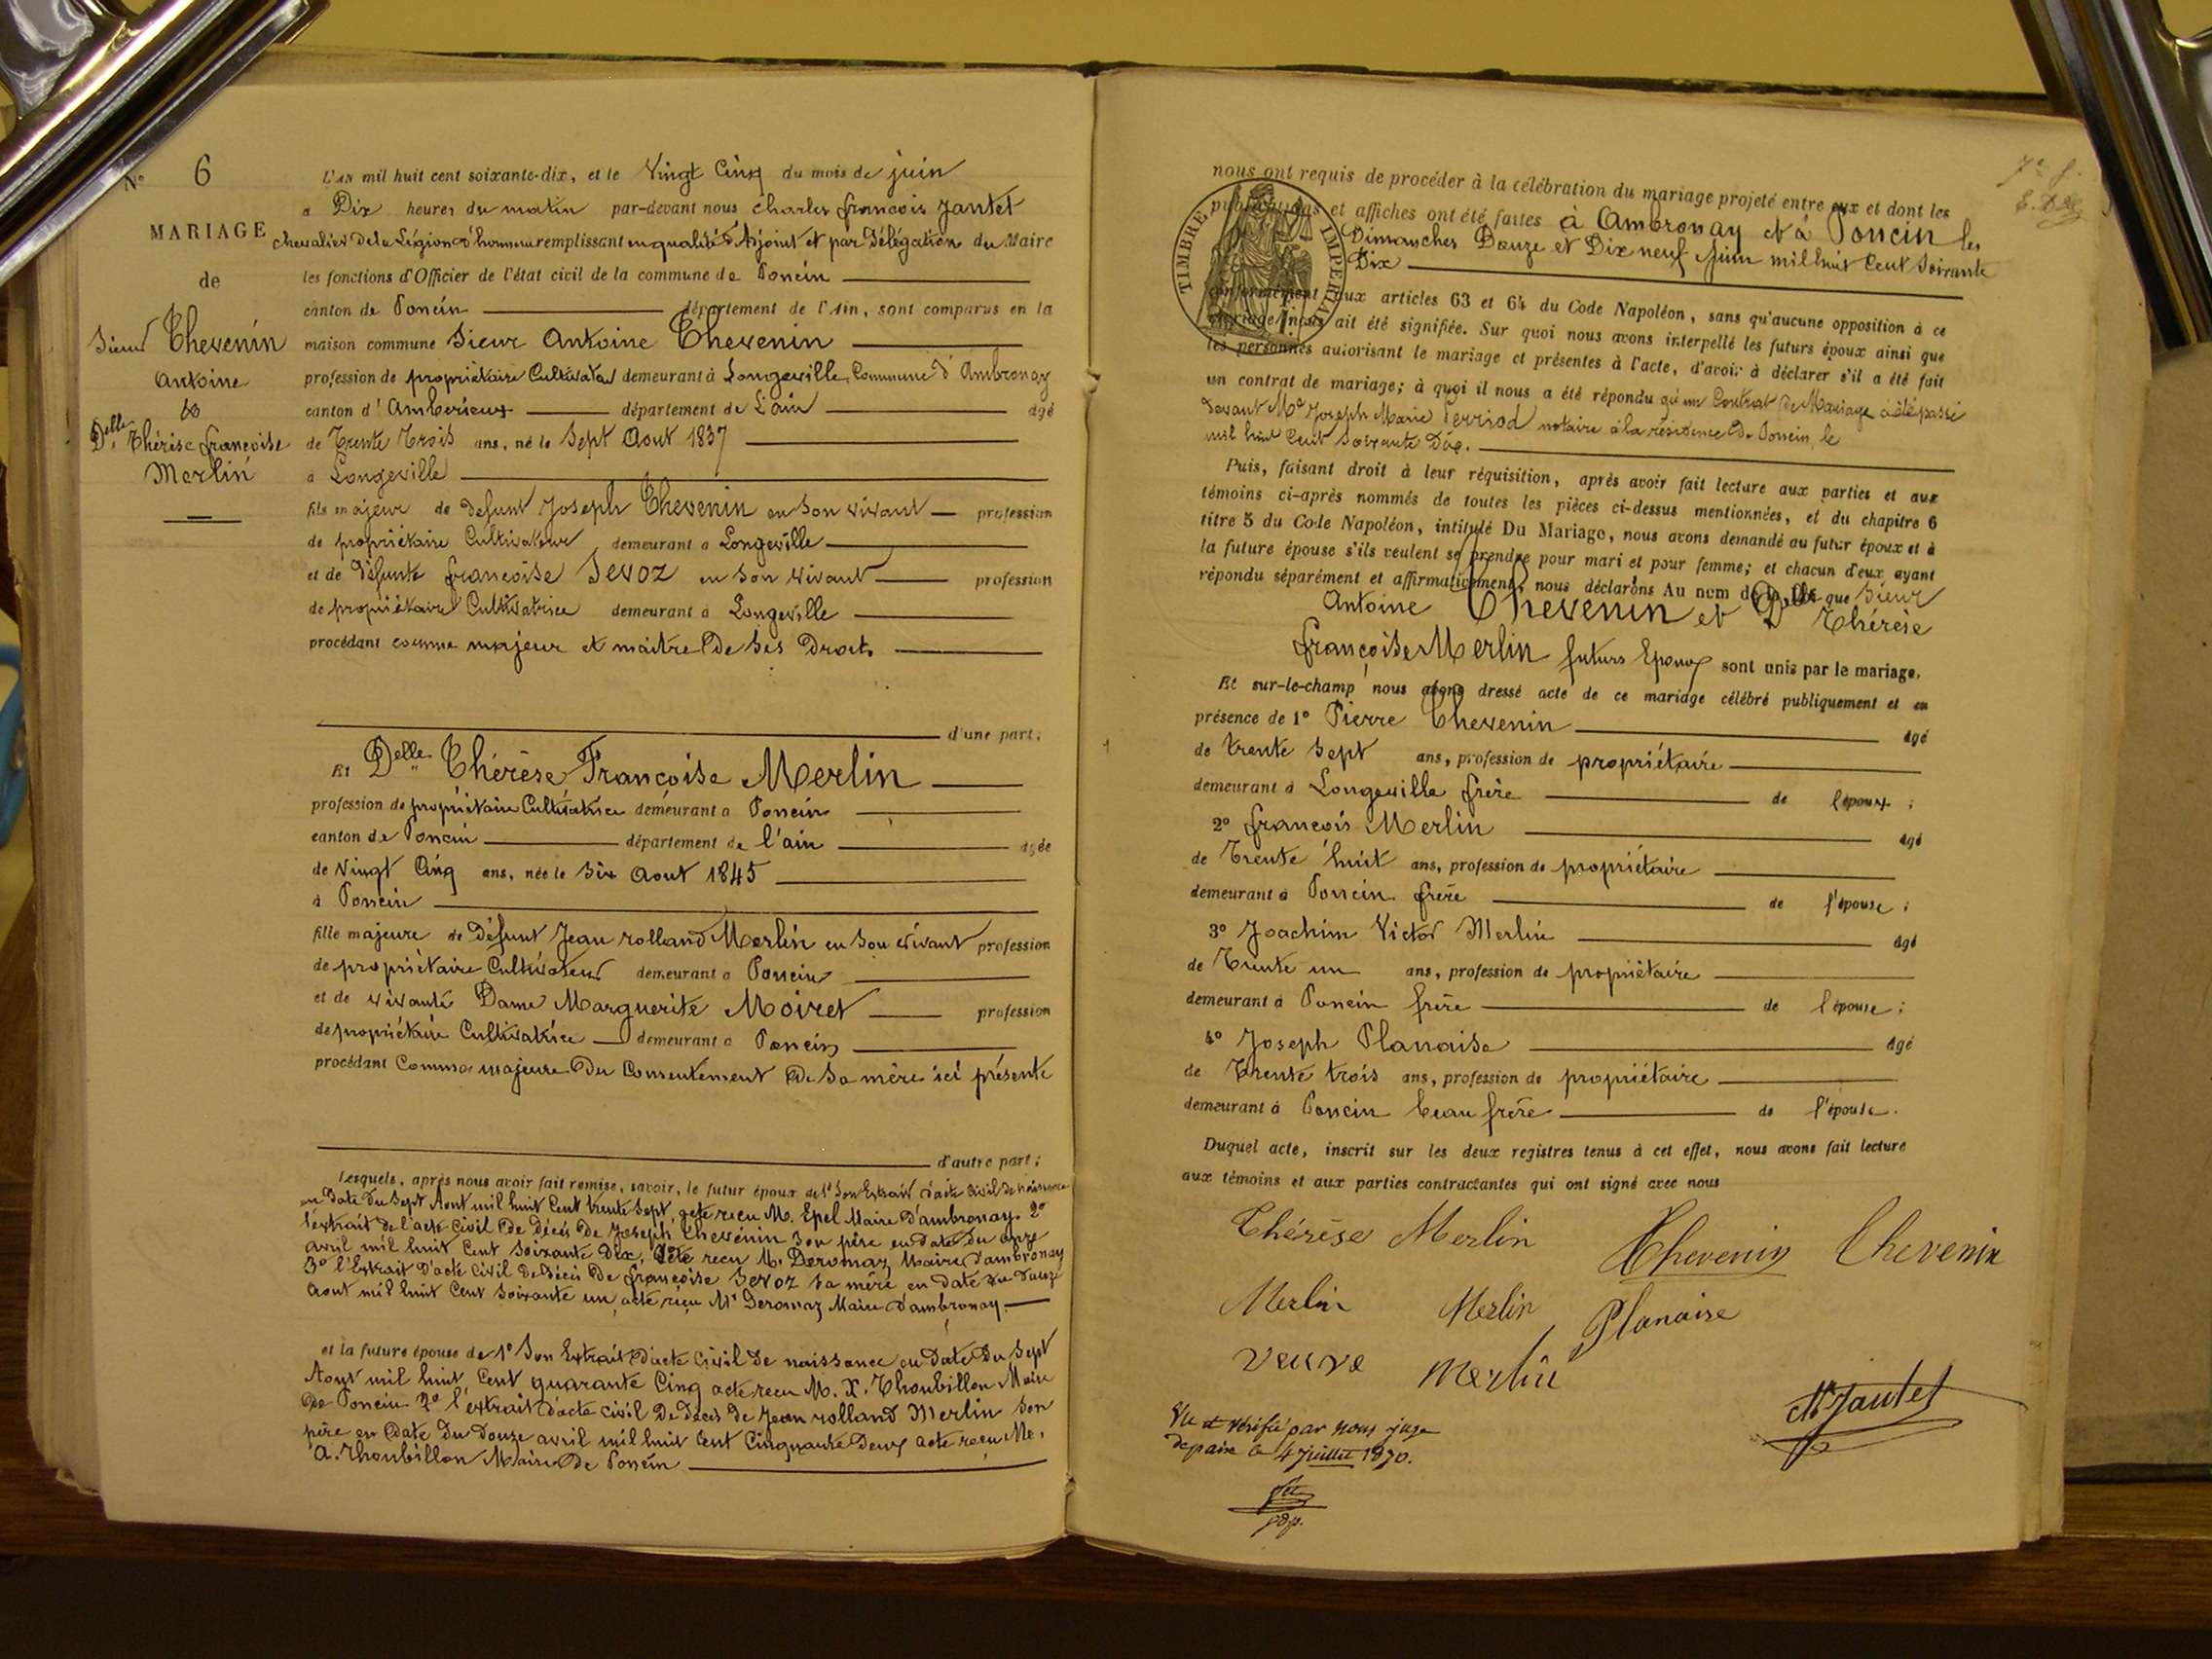 N° 6
MARIAGE
de
Sieur Thevenin
Antoine
&
Delle Thérèse françoise
Merlin
L'AN mil huit cent soixante-dix, et le Vingt Cinq du mois de juin
a Dix heures du matin par-devant nous Charles françois Jantet
chevalier de la Légion d'honneur remplissant en qualité d'Adjoint et par Délégation du Maire
les fonctions d'Officier de l'état civil de la commune de Poncin
canton de Poncin département de l'Ain, sont comparus en la
maison commune Sieur Antoine Thevenin
profession de propriétaire Cultivateur demeurant à Longeville, Commune d'Ambronay
canton d'Amberieux département de L'ain âgé
de Trente Trois ans, né le Sept Aout 1837
à Longeville
fils majeur de defunt Joseph Thevenin en son vivant profession
de propriétaire Cultivateur demeurant a Longeville
et de Défunte françoise Sevoz en son vivant profession
de propriétaire Cultivatrice demeurant a Longeville
procédant comme majeur et maitre De ses Droits
d'une part;
Et Delle Thérèse Françoise Merlin
profession de propriétaire Cultivatrice demeurant a Poncin
canton de Poncin département de l'ain âgée
de Vingt Cinq ans, née le Six Aout 1845
à Poncin
fille majeure de Défunt Jean rolland Merlin en son vivant profession
de propriétaire Cultivateur demeurant a Poncin
et de vivante Dame Marguerite Moiret profession
de propriétaire Cultivatrice demeurant a Poncin
procédant Comme majeure Du Consentement De Sa mère ici présente
d'autre part;
Lesquels, après nous avoir fait remise, savoir, le futur époux de 1° Son Extrait d'acte Civil De naissance
en Date du Sept Aout mil huit Cent trente Sept, acte reçu M. Epel Maire D'ambronay. 2°
l'extrait de l'acte Civil De Décés De Joseph Thevenin Son père en Date du onze
avril mil huit Cent Soixante Dix, acte reçu M. Deromaz Maire D'ambronay
3° l'Extrait D'acte Civil de Décés De françoise Sevoz Sa mère en Date du Douze
Aout mil huit Cent Soixante un, acte reçu Mr Deromaz Maire D'ambronay
et la future épouse de 1° Son Extrait D'acte Civil De naissance en Date Du Sept
Aout mil huit Cent quarante Cinq acte reçu M. X. Thoubillon Maire
De Poncin 2° l'extrait d'acte Civil De décés de Jean rolland Merlin Son
père en Date Du Douze avril mil huit Cent Cinquante Deux acte reçu Me.
A. Thoubillon Maire De Poncin
nous ont requis de procéder à la célébration du mariage projeté entre eux et dont les
publications et affiches ont été faites à Ambronay et à Poncin les
Dimanches Douze et Dix neuf juin mil huit Cent Soixante
Dix
TIMBRE IMPERIAL
conformément aux articles 63 et 64 du Code Napoléon, sans qu'aucune opposition à ce
mariage nous ait été signifiée. Sur quoi nous avons interpellé les futurs époux ainsi que
les personnes autorisant le mariage et présentes à l'acte, d'avoir à déclarer s'il a été fait
un contrat de mariage; à quoi il nous a été répondu qu'un Contrat De Mariage a été passé
Devant Me Joseph Marie Perriod notaire à la résidence De Poncin, le
mil huit Cent Soixante Dix.
Puis, faisant droit à leur réquisition, après avoir fait lecture aux parties et aux
témoins ci-après nommés de toutes les pièces ci-dessus mentionnées, et du chapitre 6
titre 5 du Code Napoléon, intitulé Du Mariage, nous avons demandé au futur époux et à
la future épouse s'ils veulent se prendre pour mari et pour femme; et chacun d'eux ayant
répondu séparément et affirmativement, nous déclarons Au nom de la loi que Sieur
Antoine Thevenin et Delle Thérèse
françoise Merlin futurs Epoux sont unis par le mariage.
Et sur-le-champ nous avons dressé acte de ce mariage célébré publiquement et en
présence de 1° Pierre Thevenin âgé
de trente sept ans, profession de propriétaire
demeurant à Longeville frère de l'époux;
2° françois Merlin âgé
de Trente huit ans, profession de propriétaire
demeurant à Poncin frère de l'épouse;
3° Joachim Victor Merlin âgé
de Trente un ans, profession de propriétaire
demeurant à Poncin frère de l'épouse;
4° Joseph Planaise âgé
de Trente trois ans, profession de propriétaire
demeurant à Poncin beau frère de l'épouse.
Duquel acte, inscrit sur les deux registres tenus à cet effet, nous avons fait lecture
aux témoins et aux parties contractantes qui ont signé avec nous
Thérèse Merlin Thevenin Thevenin
Merlin Merlin Planaise
veuve Merlin
Ch Jantet
Vu et vérifié par nous juge
de paix le 4 juillet 1870.